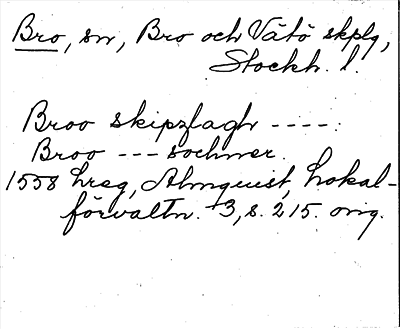 Bro, sn, Bro och Vätö skplg,
Stockh. l.
Broo skipzlagh ----:
Broo --- sochner.
1558 hreg, Almquist, Lokal-
förvaltn. +3, s. 215. orig.